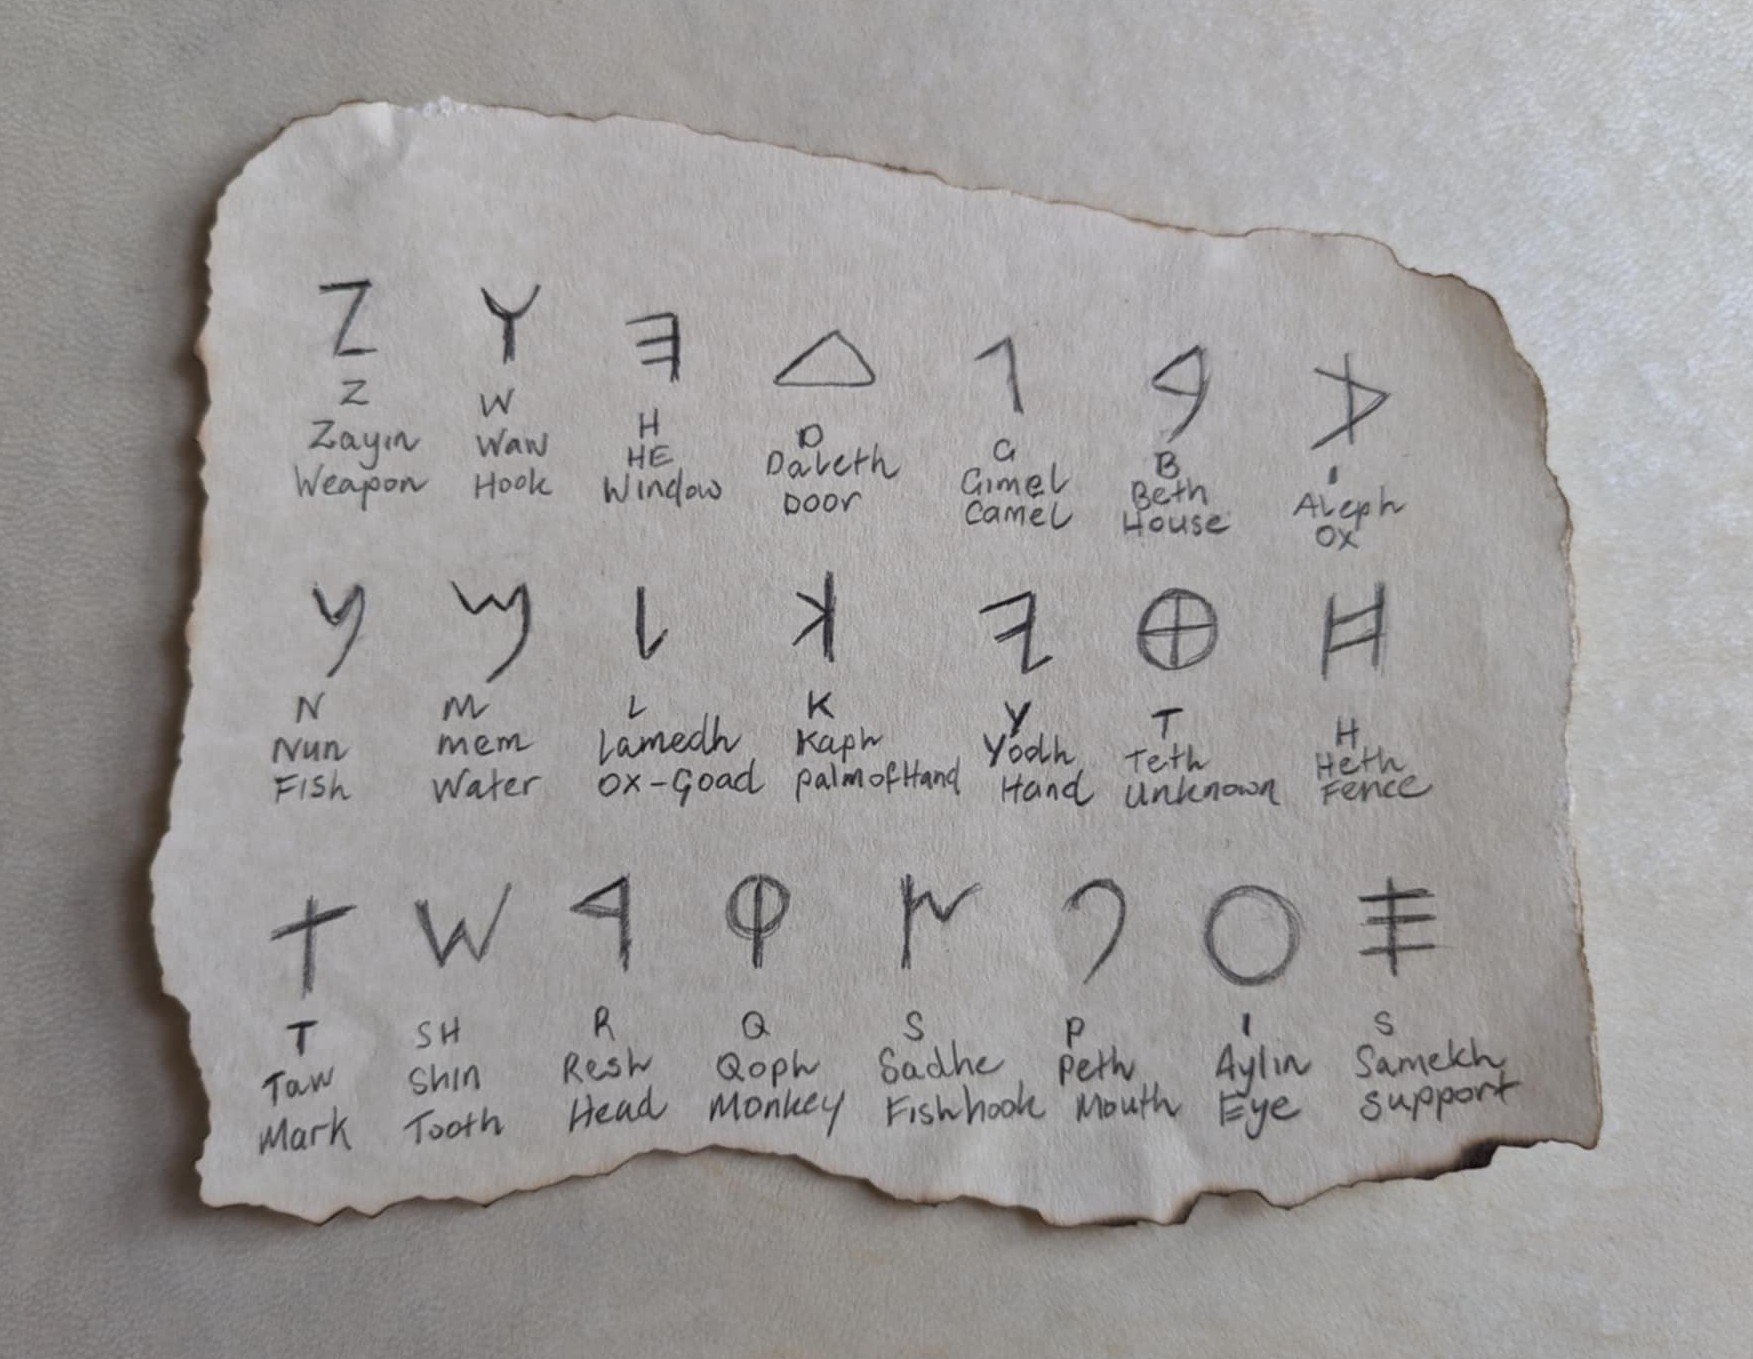 𐤀 𐤁 𐤂 𐤃 𐤄 𐤅 𐤆
Z W H D G B '
Zayin Waw HE Daleth Gimel Beth Aleph
Weapon Hook Window Door Camel House Ox
𐤇 𐤈 𐤉 𐤊 𐤋 𐤌 𐤍
N M L K Y T H
Nun mem Lamedh Kaph Yodh Teth Heth
Fish Water Ox-Goad palm of Hand Hand Unknown Fence
𐤎 𐤏 𐤐 𐤑 𐤒 𐤓 𐤔 𐤕
T SH R Q S P ' S
Taw Shin Resh Qoph Sadhe Peth Aylin Samekh
Mark Tooth Head Monkey Fishhook Mouth Eye Support